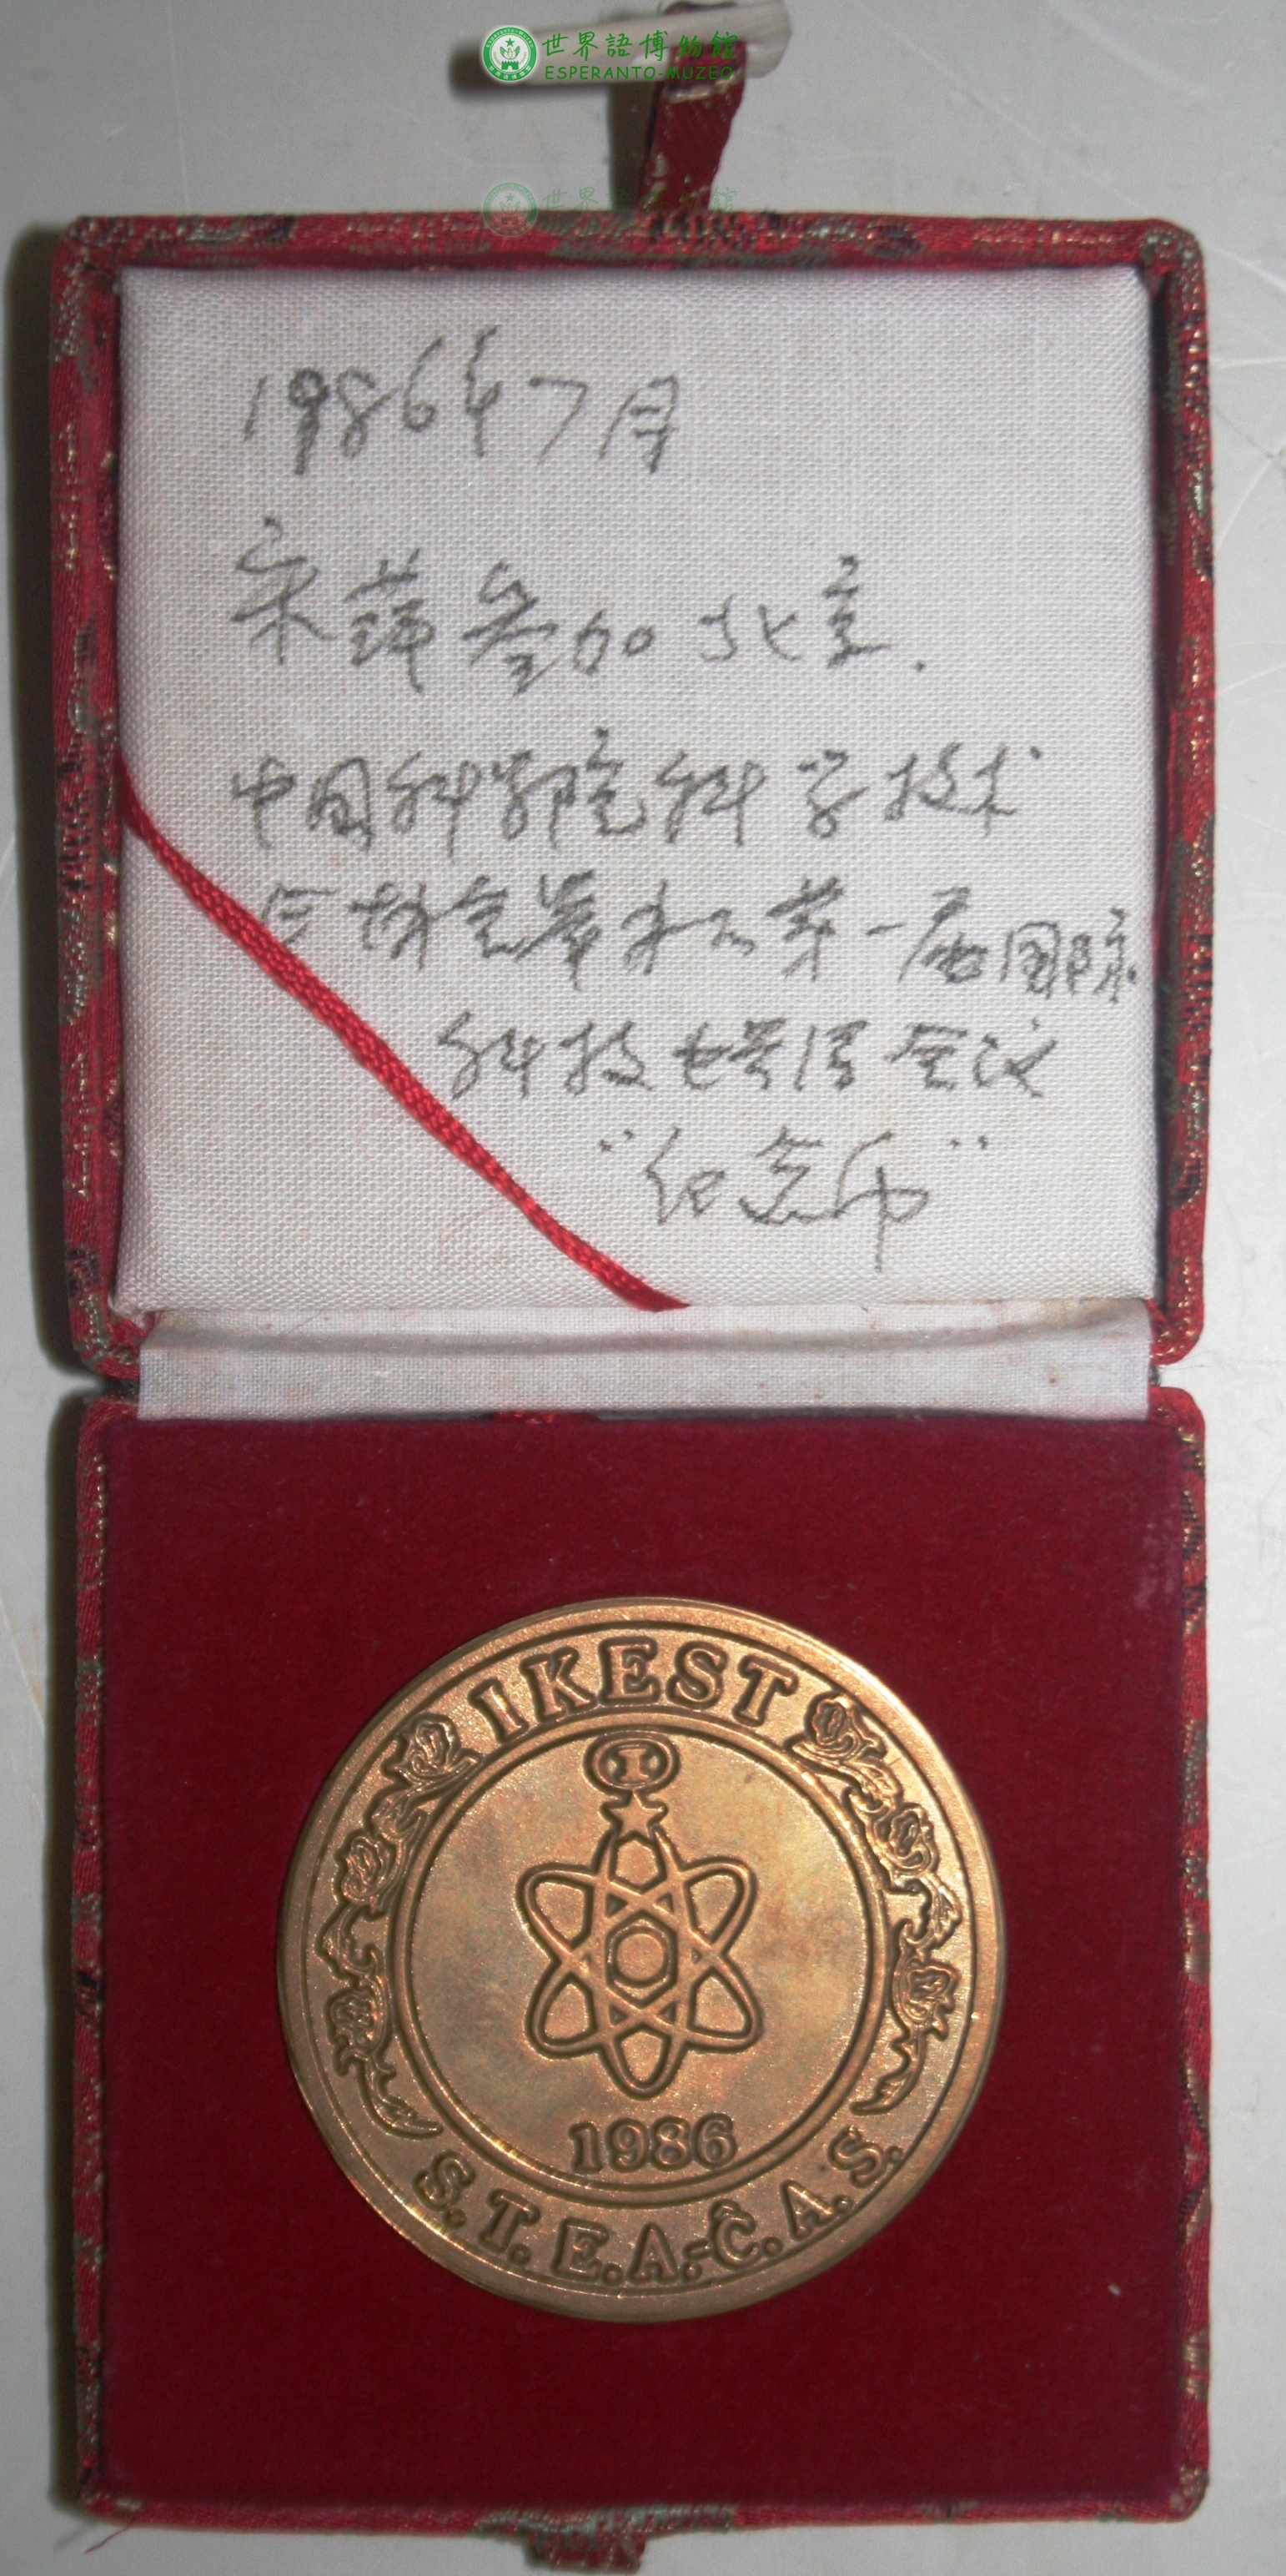 世界語博物館
ESPERANTO-MUZEO
世界語博物館
1986年7月
宋萍参加北京.
中国科学院科学技术
会 举办的第一届国际
科技世界语会议
"纪念币"
IKEST
1986
S.T.E.A.-Ĉ.A.S.